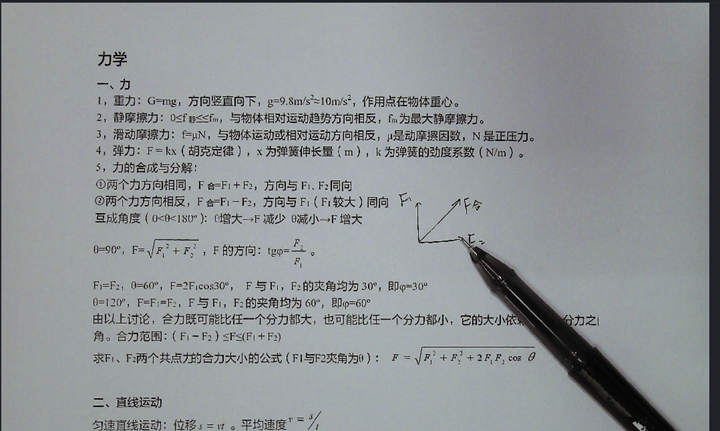 力学
一、力
1，重力：G=mg，方向竖直向下，g=9.8m/s²≈10m/s²，作用点在物体重心。
2，静摩擦力：0≤f静≤≤fm，与物体相对运动趋势方向相反，fm为最大静摩擦力。
3，滑动摩擦力：f=μN，与物体运动或相对运动方向相反，μ是动摩擦因数，N是正压力。
4，弹力：F = kx（胡克定律），x为弹簧伸长量（m），k为弹簧的劲度系数（N/m）。
5，力的合成与分解：
①两个力方向相同，F合=F1+F2，方向与F1、F2同向
②两个力方向相反，F合=F1－F2，方向与F1（F1较大）同向
互成角度（0<θ<180º）：θ增大→F减少 θ减小→F增大
F1 F合
F2
θ=90º，F=√(F1²+F2²)，F的方向：tgφ=F2/F1。
F1=F2，θ=60º，F=2F1cos30º， F与F1，F2的夹角均为30º，即φ=30º
θ=120º，F=F1=F2，F与F1，F2的夹角均为60º，即φ=60º
由以上讨论，合力既可能比任一个分力都大，也可能比任一个分力都小，它的大小依 分力之
角。合力范围：（F1－F2）≤F≤(F1＋F2)
求F1、F2两个共点力的合力大小的公式（F1与F2夹角为θ）： F = √(F1² + F2² + 2F1F2 cos θ)
二、直线运动
匀速直线运动：位移s = vt 。平均速度v = s/t